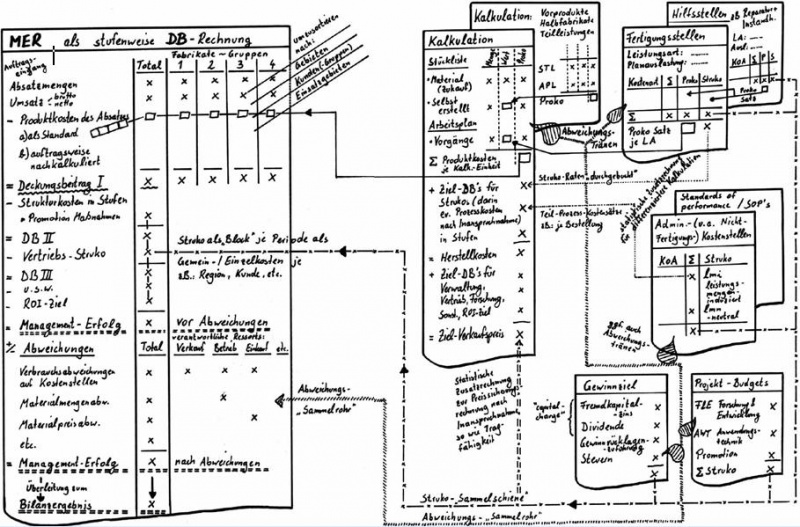 MER als stufenweise DB-Rechnung
Auftrags-
eingang
Total
Fabrikate-Gruppen
1 2 3 4
umzusortieren
nach:
Gebieten
Kunden(-Gruppen)
Einsatzgebieten
Absatzmengen x x x x x
Umsatz - brutto
netto x x x x x
- Produktkosten des Absatzes
a) als Standard
b) auftragsweise
nachkalkuliert
= Deckungsbeitrag I x x x x x
- Strukturkosten in Stufen
• Promotion Maßnahmen x
= DB II x
Struko als "Block" je Periode als
- Vertriebs-Struko x
Gemein-/Einzelkosten je
= DB III x
zB.: Region, Kunde, etc.
- u.s.w. x
- ROI-Ziel x
= Management-Erfolg x vor Abweichungen
verantwortliche Ressorts:
% Abweichungen Total Verkauf Betrieb Einkauf etc.
Verbrauchsabweichungen
auf Kostenstellen x x x x
Materialmengenabw. x x
Materialpreisabw. x x
etc. x
= Management-Erfolg x nach Abweichungen
Überleitung zum
Bilanzergebnis x
Abweichungs-
"Sammelrohr"
Kalkulation:
Vorprodukte
Halbfabrikate
Teilleistungen
STL x x x
APL x x x
Proko
Kalkulation
Menge Wert Proko
Stückliste
• Material
(zukauf) x x x
• Selbst
erstellt x x
Arbeitsplan
• Vorgänge x x
Σ Produktkosten
je Kalk.-Einheit
+ Ziel-DB's für
Strukos (darin
ev. Prozesskosten
nach Inanspruchnahme)
in Stufen
= Herstellkosten x
+ Ziel-DB's für
Verwaltung,
Vertrieb, Forschung,
Sond., ROI-Ziel x
= Ziel-Verkaufspreis x
Abweichungs-
Tränen
Struko-Raten "durchgebucht"
Teil-Prozess-Kostensätze
zB.: je Bestellung
Statistische
Zusatzrechnung
zur Preisfindungs-
rechnung nach
Inanspruchnahme,
so wie Trag-
fähigkeit
Hilfsstellen zB Reparatur +
Instandh.
LA:
Ausl.:
KOA Σ P S
x x x
Proko
Satz
Fertigungsstellen
Leistungsart:
Planauslastung:
Kostenart Σ Proko Struko
Σ x x
Proko Satz
je LA
statistische Zusatzrechnung
für differenziertere Kalkulation
Standards of
performance / SOP's
Admin.- (u.a. Nicht-
Fertigungs-) Kostenstellen
KoA Σ Struko
x lmi
leistungs-
mengen-
induziert
x lmn
-neutral
x
ggf. auch
Abweichungs-
tränen
Gewinnziel
"capital-
charge"
Fremdkapital-
zins x
Dividende x
Gewinnrücklagen-
zuführung x
Steuern x
x
Projekt-Budgets
F&E Forschung &
Entwicklung x
AWT Anwendungs-
technik x
Promotion x
Σ Struko x
Struko-Sammelschiene
Abweichungs-"Sammelrohr"